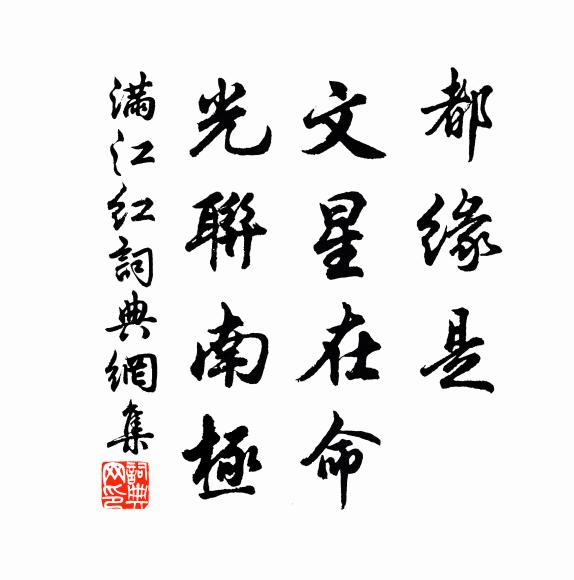 都緣是
文星在命
光聯南極
滿江紅詞典網集
詞典網印